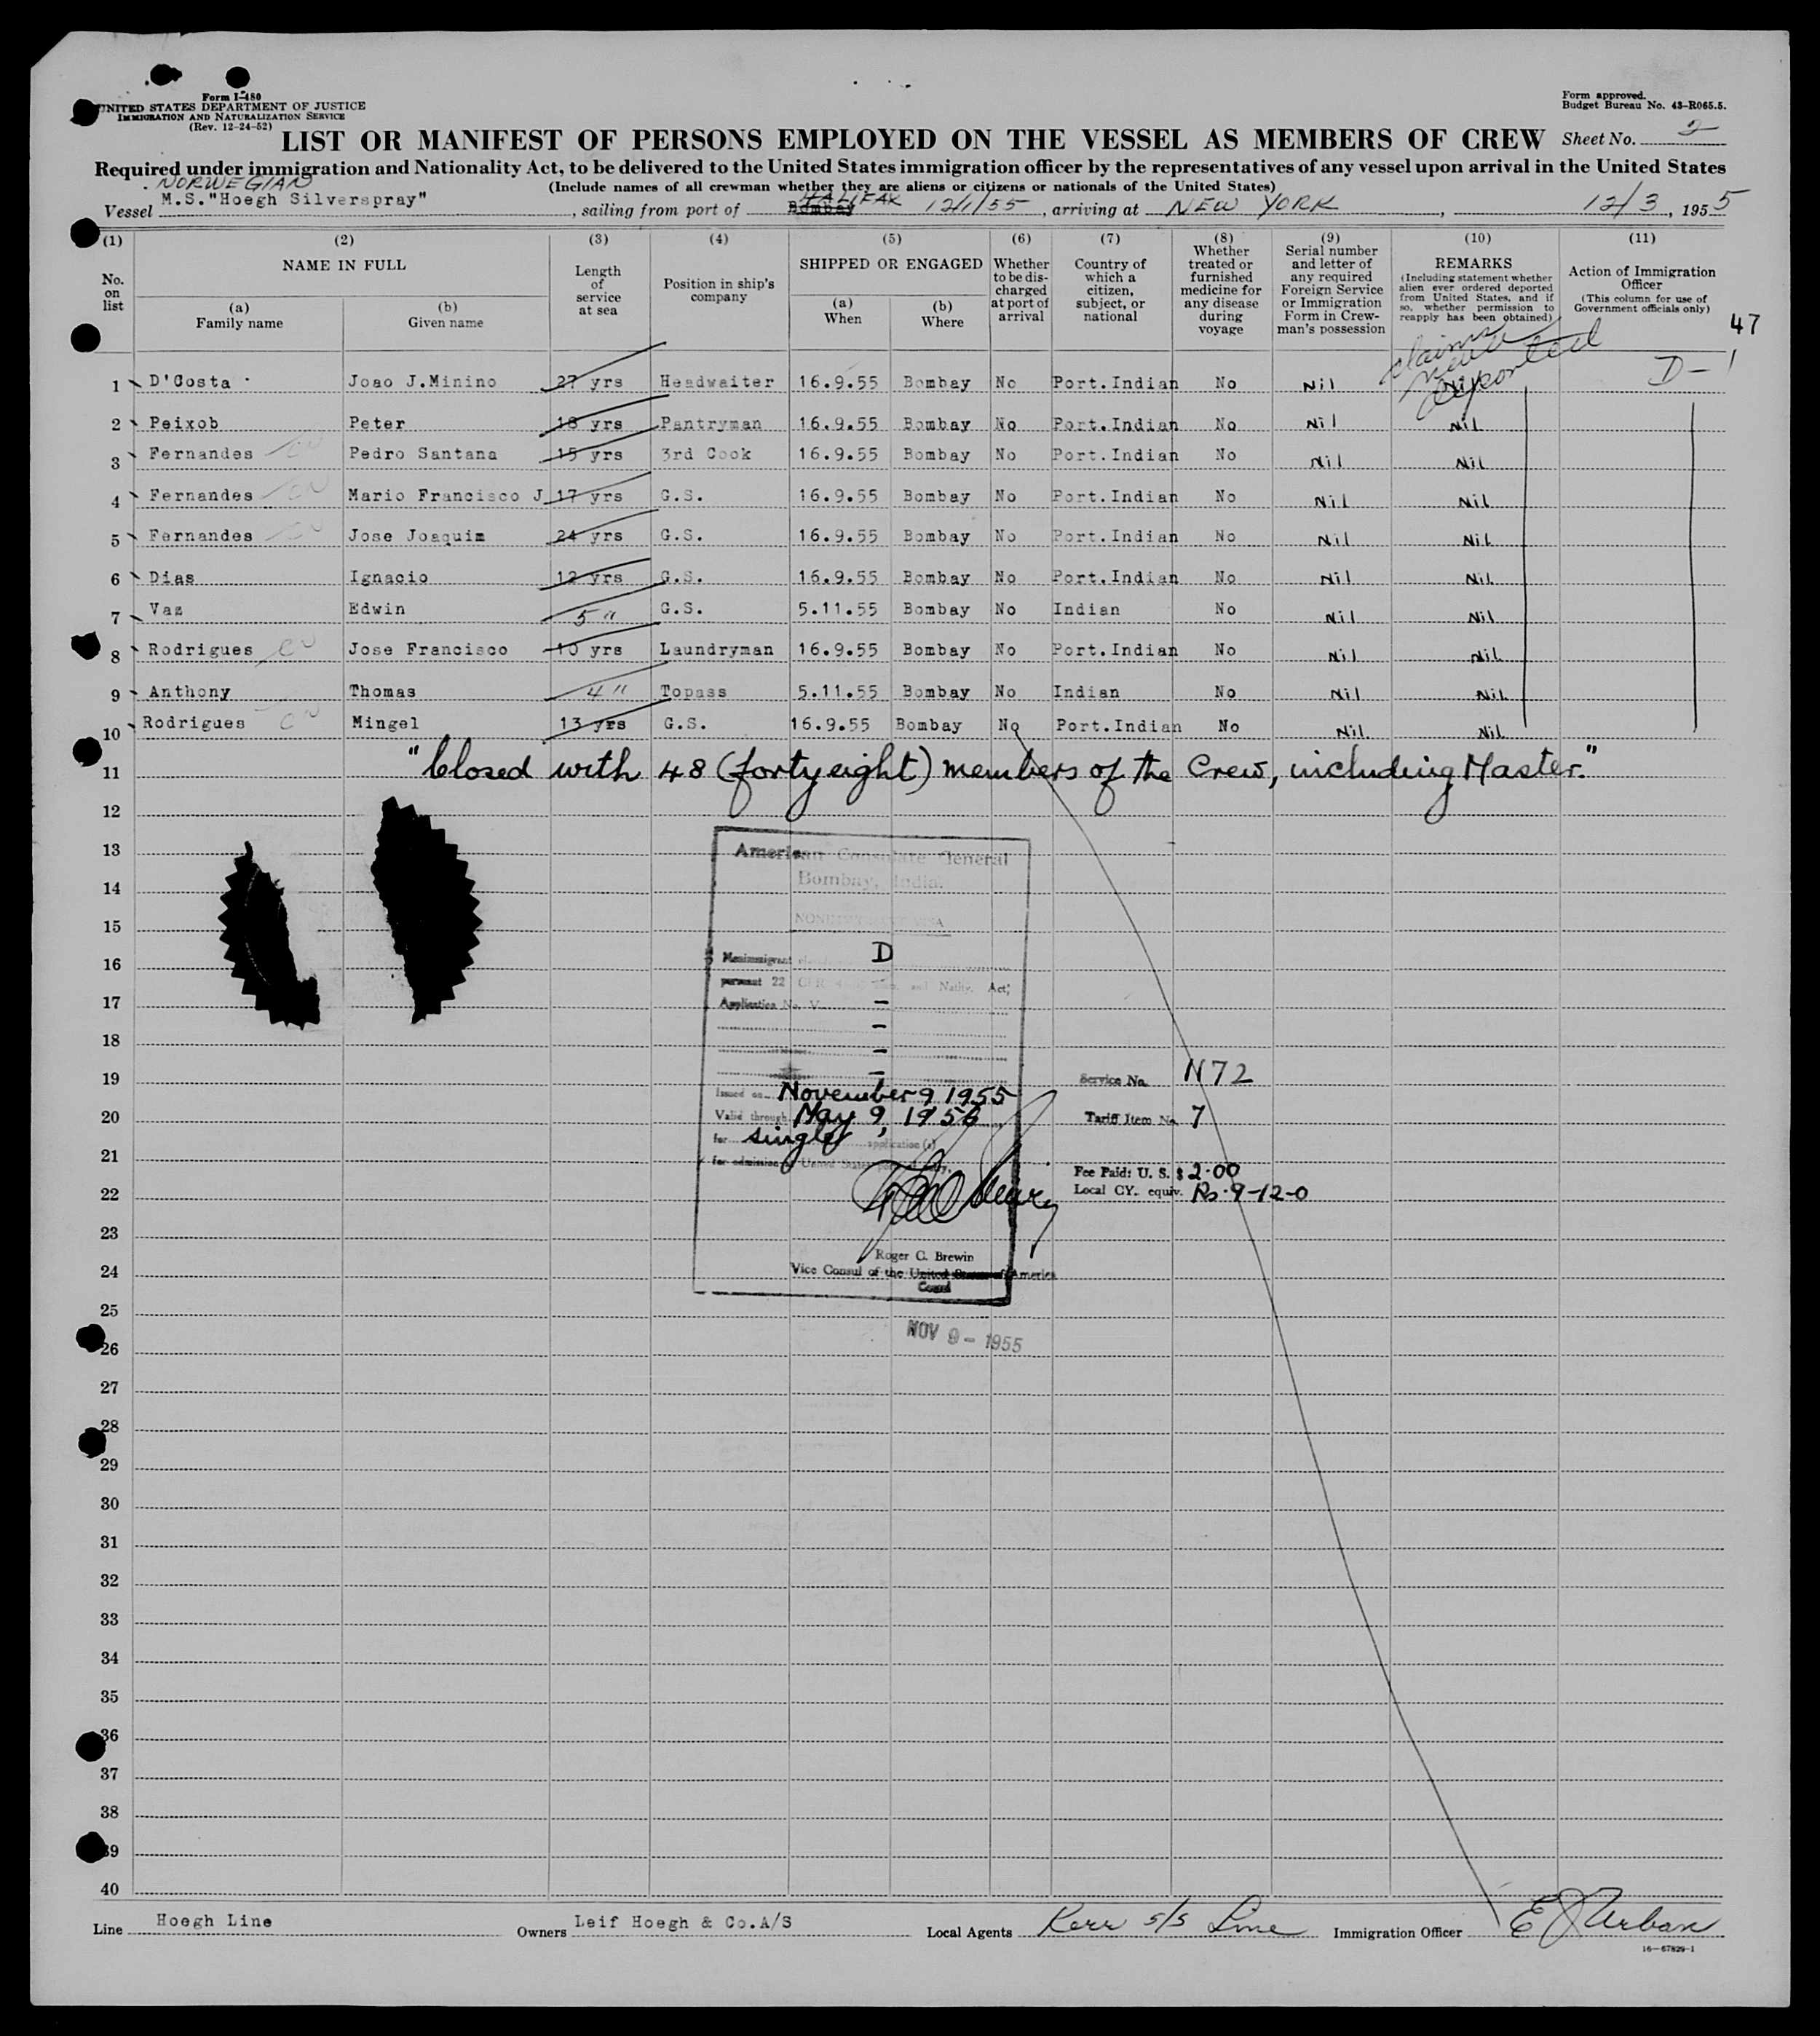 Form I-480
UNITED STATES DEPARTMENT OF JUSTICE
IMMIGRATION AND NATURALIZATION SERVICE
(Rev. 12-24-52)
Form approved.
Budget Bureau No. 43-R065.5.
LIST OR MANIFEST OF PERSONS EMPLOYED ON THE VESSEL AS MEMBERS OF CREW
Sheet No. 2
Required under immigration and Nationality Act, to be delivered to the United States immigration officer by the representatives of any vessel upon arrival in the United States
(Include names of all crewman whether they are aliens or citizens or nationals of the United States)
NORWEGIAN
Vessel M.S."Hoegh Silverspray", sailing from port of Bombay HALIFAX 12/1/55, arriving at NEW YORK, 12/3, 1955
(1) (2) (3) (4) (5) (6) (7) (8) (9) (10) (11)
No. on list
NAME IN FULL
(a) Family name
(b) Given name
Length of service at sea
Position in ship's company
SHIPPED OR ENGAGED
(a) When
(b) Where
Whether to be discharged at port of arrival
Country of which a citizen, subject, or national
Whether treated or furnished medicine for any disease during voyage
Serial number and letter of any required Foreign Service or Immigration Form in Crewman's possession
REMARKS
(Including statement whether alien ever ordered deported from United States, and if so, whether permission to reapply has been obtained)
Action of Immigration Officer
(This column for use of Government officials only)
47
claims never deported
1 D'Costa Joao J.Minino 27 yrs Headwaiter 16.9.55 Bombay No Port.Indian No Nil Nil D-1
2 Peixob Peter 18 yrs Pantryman 16.9.55 Bombay No Port.Indian No Nil Nil
3 Fernandes Pedro Santana 15 yrs 3rd Cook 16.9.55 Bombay No Port.Indian No Nil Nil
4 Fernandes Mario Francisco J 17 yrs G.S. 16.9.55 Bombay No Port.Indian No Nil Nil
5 Fernandes Jose Joaquim 24 yrs G.S. 16.9.55 Bombay No Port.Indian No Nil Nil
6 Dias Ignacio 12 yrs G.S. 16.9.55 Bombay No Port.Indian No Nil Nil
7 Vaz Edwin 5 " G.S. 5.11.55 Bombay No Indian No Nil Nil
8 Rodrigues Jose Francisco 10 yrs Laundryman 16.9.55 Bombay No Port.Indian No Nil Nil
9 Anthony Thomas 4 " Topass 5.11.55 Bombay No Indian No Nil Nil
10 Rodrigues Mingel 13 yrs G.S. 16.9.55 Bombay No Port.Indian No Nil. Nil
11 "Closed with 48 (forty eight) members of the Crew, including Master."
12
13
American Consulate General
14
Bombay, India.
15
16
Nonimmigrant D
pursuant 22 Act;
17
Application No. V
18
19
Service No. N72
Issued on November 9 1955
20
Valid through May 9, 1956
Tariff Item No. 7
for single application(s)
21
for admission United States
Fee Paid: U. S. $ 2.00
22
Local CY. equiv. Rs. 9-12-0
23
Roger C. Brewin
24
Vice Consul of the United States of America
Consul
25
NOV 9 - 1955
26
27
28
29
30
31
32
33
34
35
36
37
38
39
40
Line Hoegh Line Owners Leif Hoegh & Co.A/S Local Agents Kerr S/S Line Immigration Officer E J Urban
16-67829-1